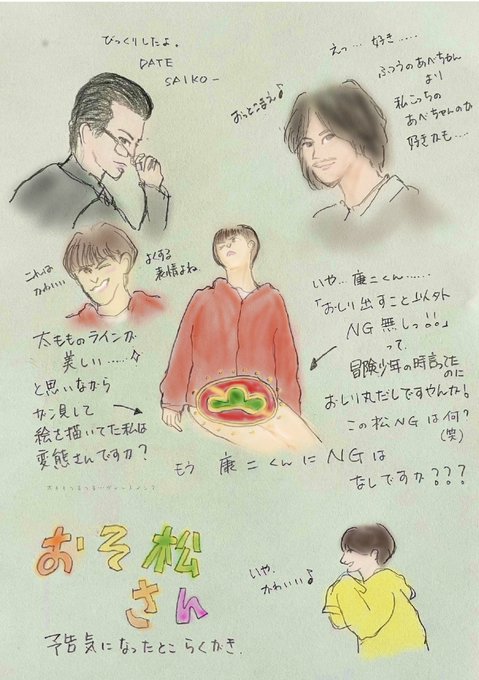 びっくりしたよ。
DATE
SAIKO ー
えっ…好き……
ふつうのあべちゃん
より
私こっちの
あべちゃんのが
好きかも……
おっとこまえ♪
こんな
かわいい
よくする
表情よね
太もものラインが
美しい……☆
と思いながら
ガン見して
絵を描いてた私は
変態さんですか?
いや…康二くん……
「おしり出すこと以外
NG無しっ!!」
って
冒険少年の時言ってた
のに
おしり丸だしですやんか!
この松NGは何?
(笑)
もう 康二くんにNGは
なしですか???
おそ松
さん
予告気になったとこらくがき.
いや、
かわいい♪